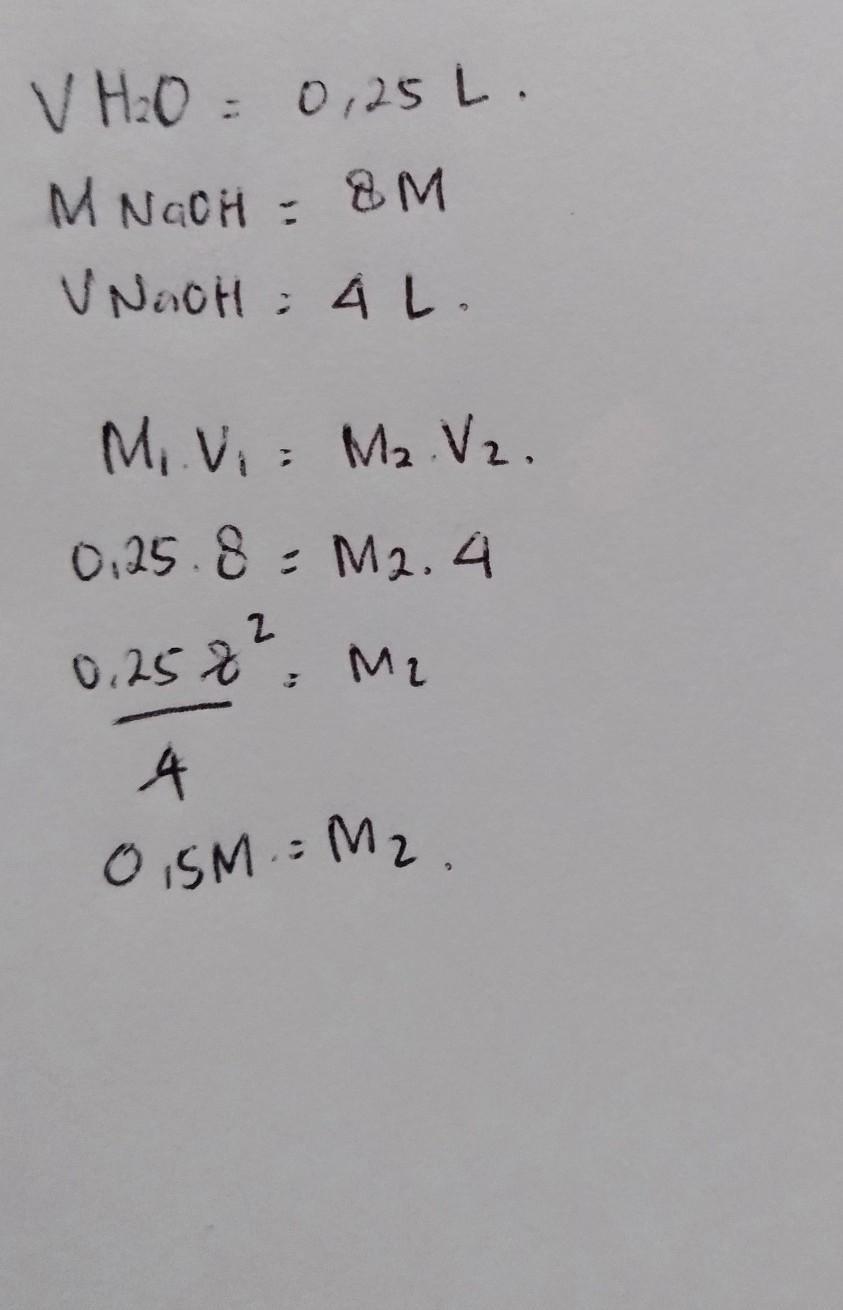 V H₂O = 0,25 L.
M NaOH = 8 M
V NaOH = 4 L.
M₁.V₁ = M₂.V₂.
0,25.8 = M₂.4
0,25 8² = M₂
4
0,5M = M₂.